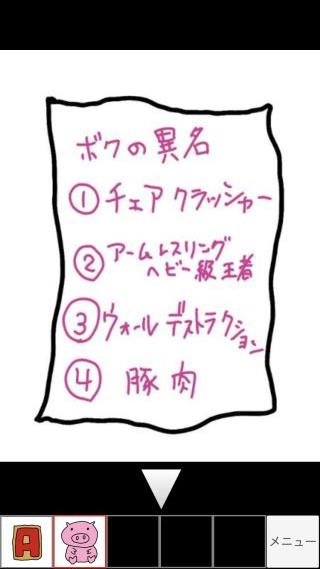 ボクの異名
① チェア クラッシャー
② アームレスリング
ヘビー級王者
③ ウォール デストラクション
④ 豚肉
A
メニュー